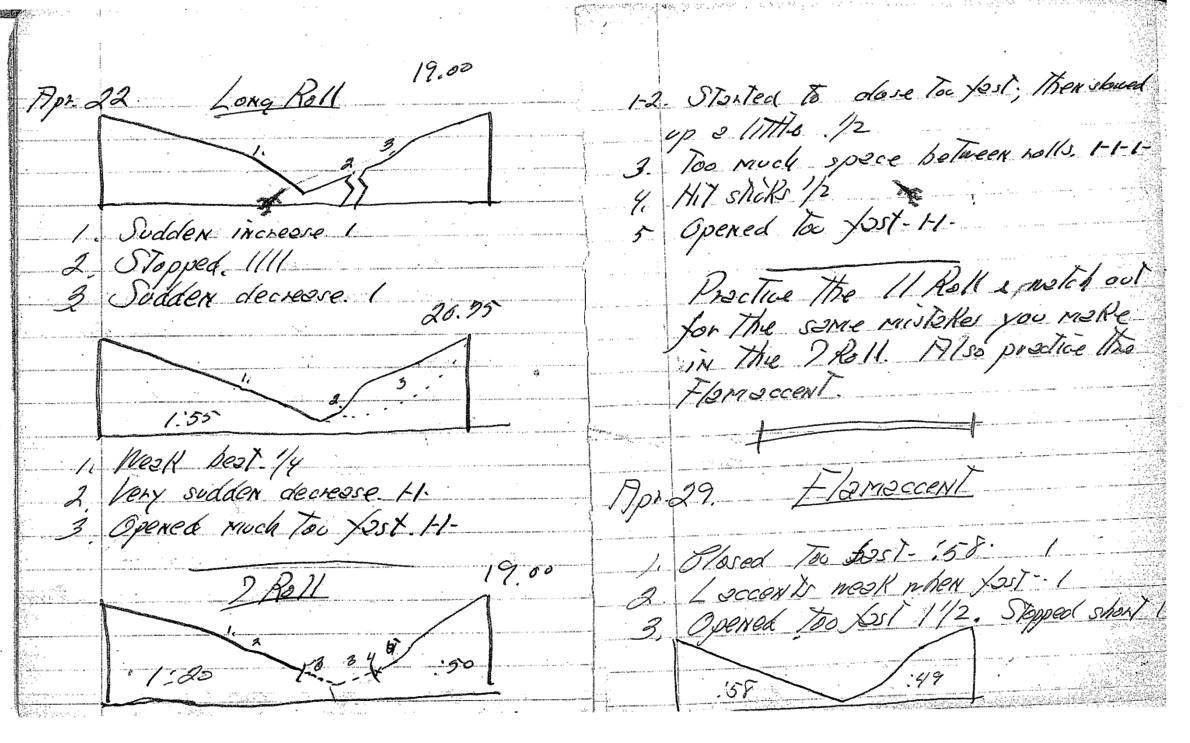 19.00
Apr. 22 Long Roll
1. 2 3.
1. Sudden increase 1
2. Stopped. 1111
3. Sudden decrease. 1
20.75
1. 2 3
1:55
1. Weak beat - 1/4
2. Very sudden decrease 1-1-
3. Opened much too fast. 1-1-
7 Roll 19.00
1. 2 3 4 5
1:20 :50
1-2. Started to close too fast; then slowed
up a little. 1/2
3. Too much space between rolls. 1-1-1-
4. Hit sticks 1/2
5 Opened too fast - 1-1-
Practice the 11 Roll & watch out
for the same mistakes you make
in the 7 Roll. Also practice the
Flamaccent.
Apr. 29. Flamaccent
1. Closed too fast - :58. 1
2. L accents weak when fast - 1
3. Opened too fast 1 1/2. Stopped short 1
:58 :49